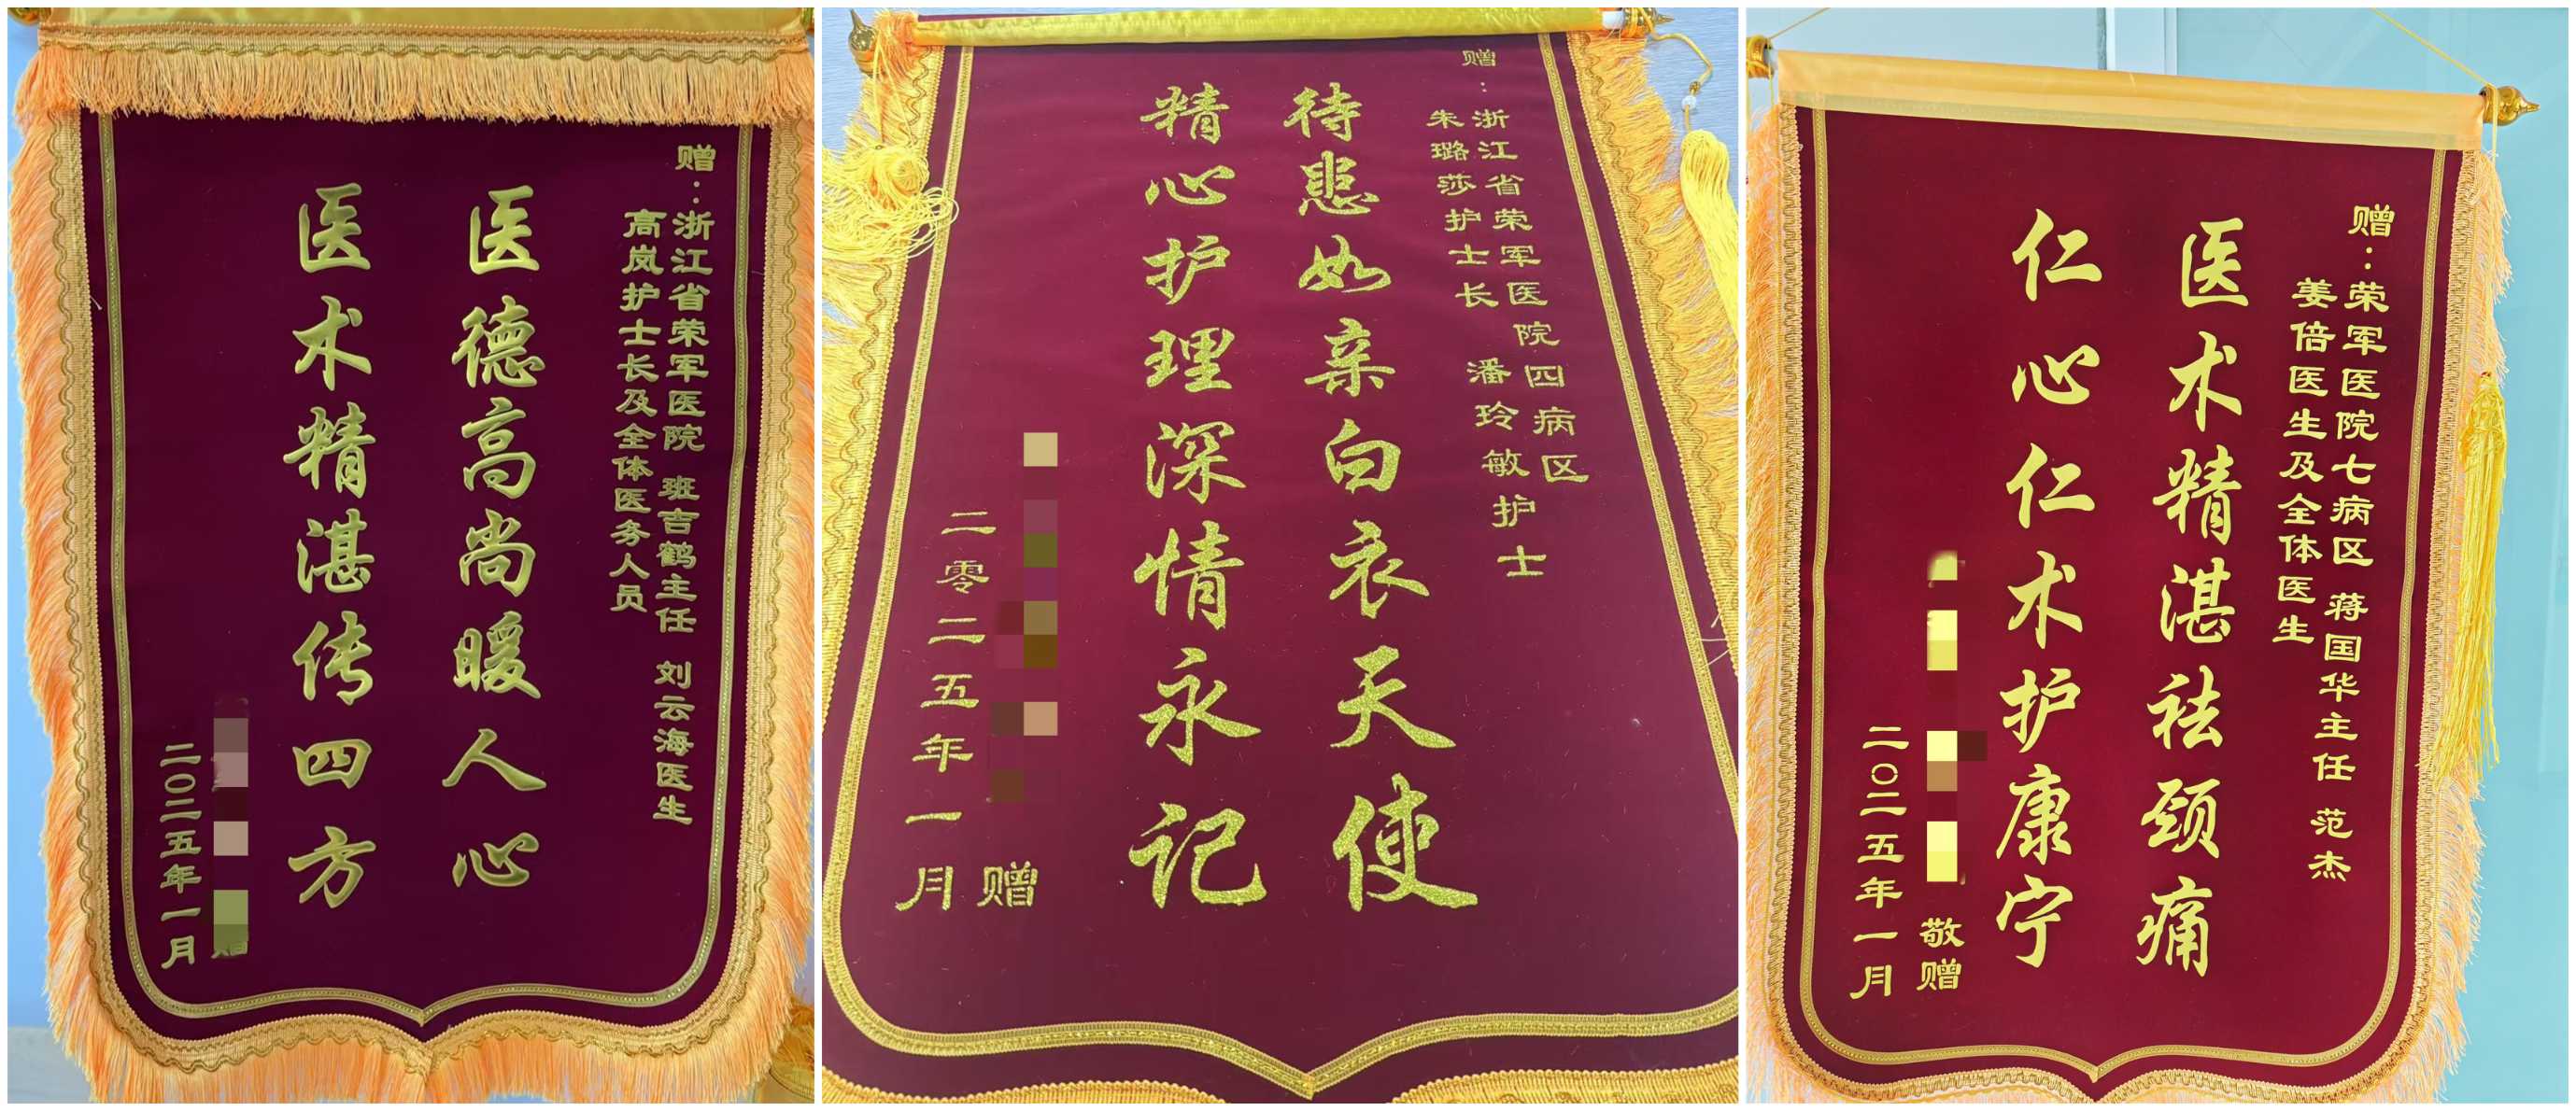 赠：浙江省荣军医院 班吉鹤主任 刘云海医生
高岚护士长及全体医务人员
医德高尚暖人心
医术精湛传四方
二〇二五年一月
赠：浙江省荣军医院四病区
朱璐莎护士长 潘玲敏护士
待患如亲白衣天使
精心护理深情永记
赠
二零二五年一月
赠：荣军医院七病区 蒋国华主任 范杰
姜倍医生及全体医生
医术精湛祛颈痛
仁心仁术护康宁
敬赠
二〇二五年一月